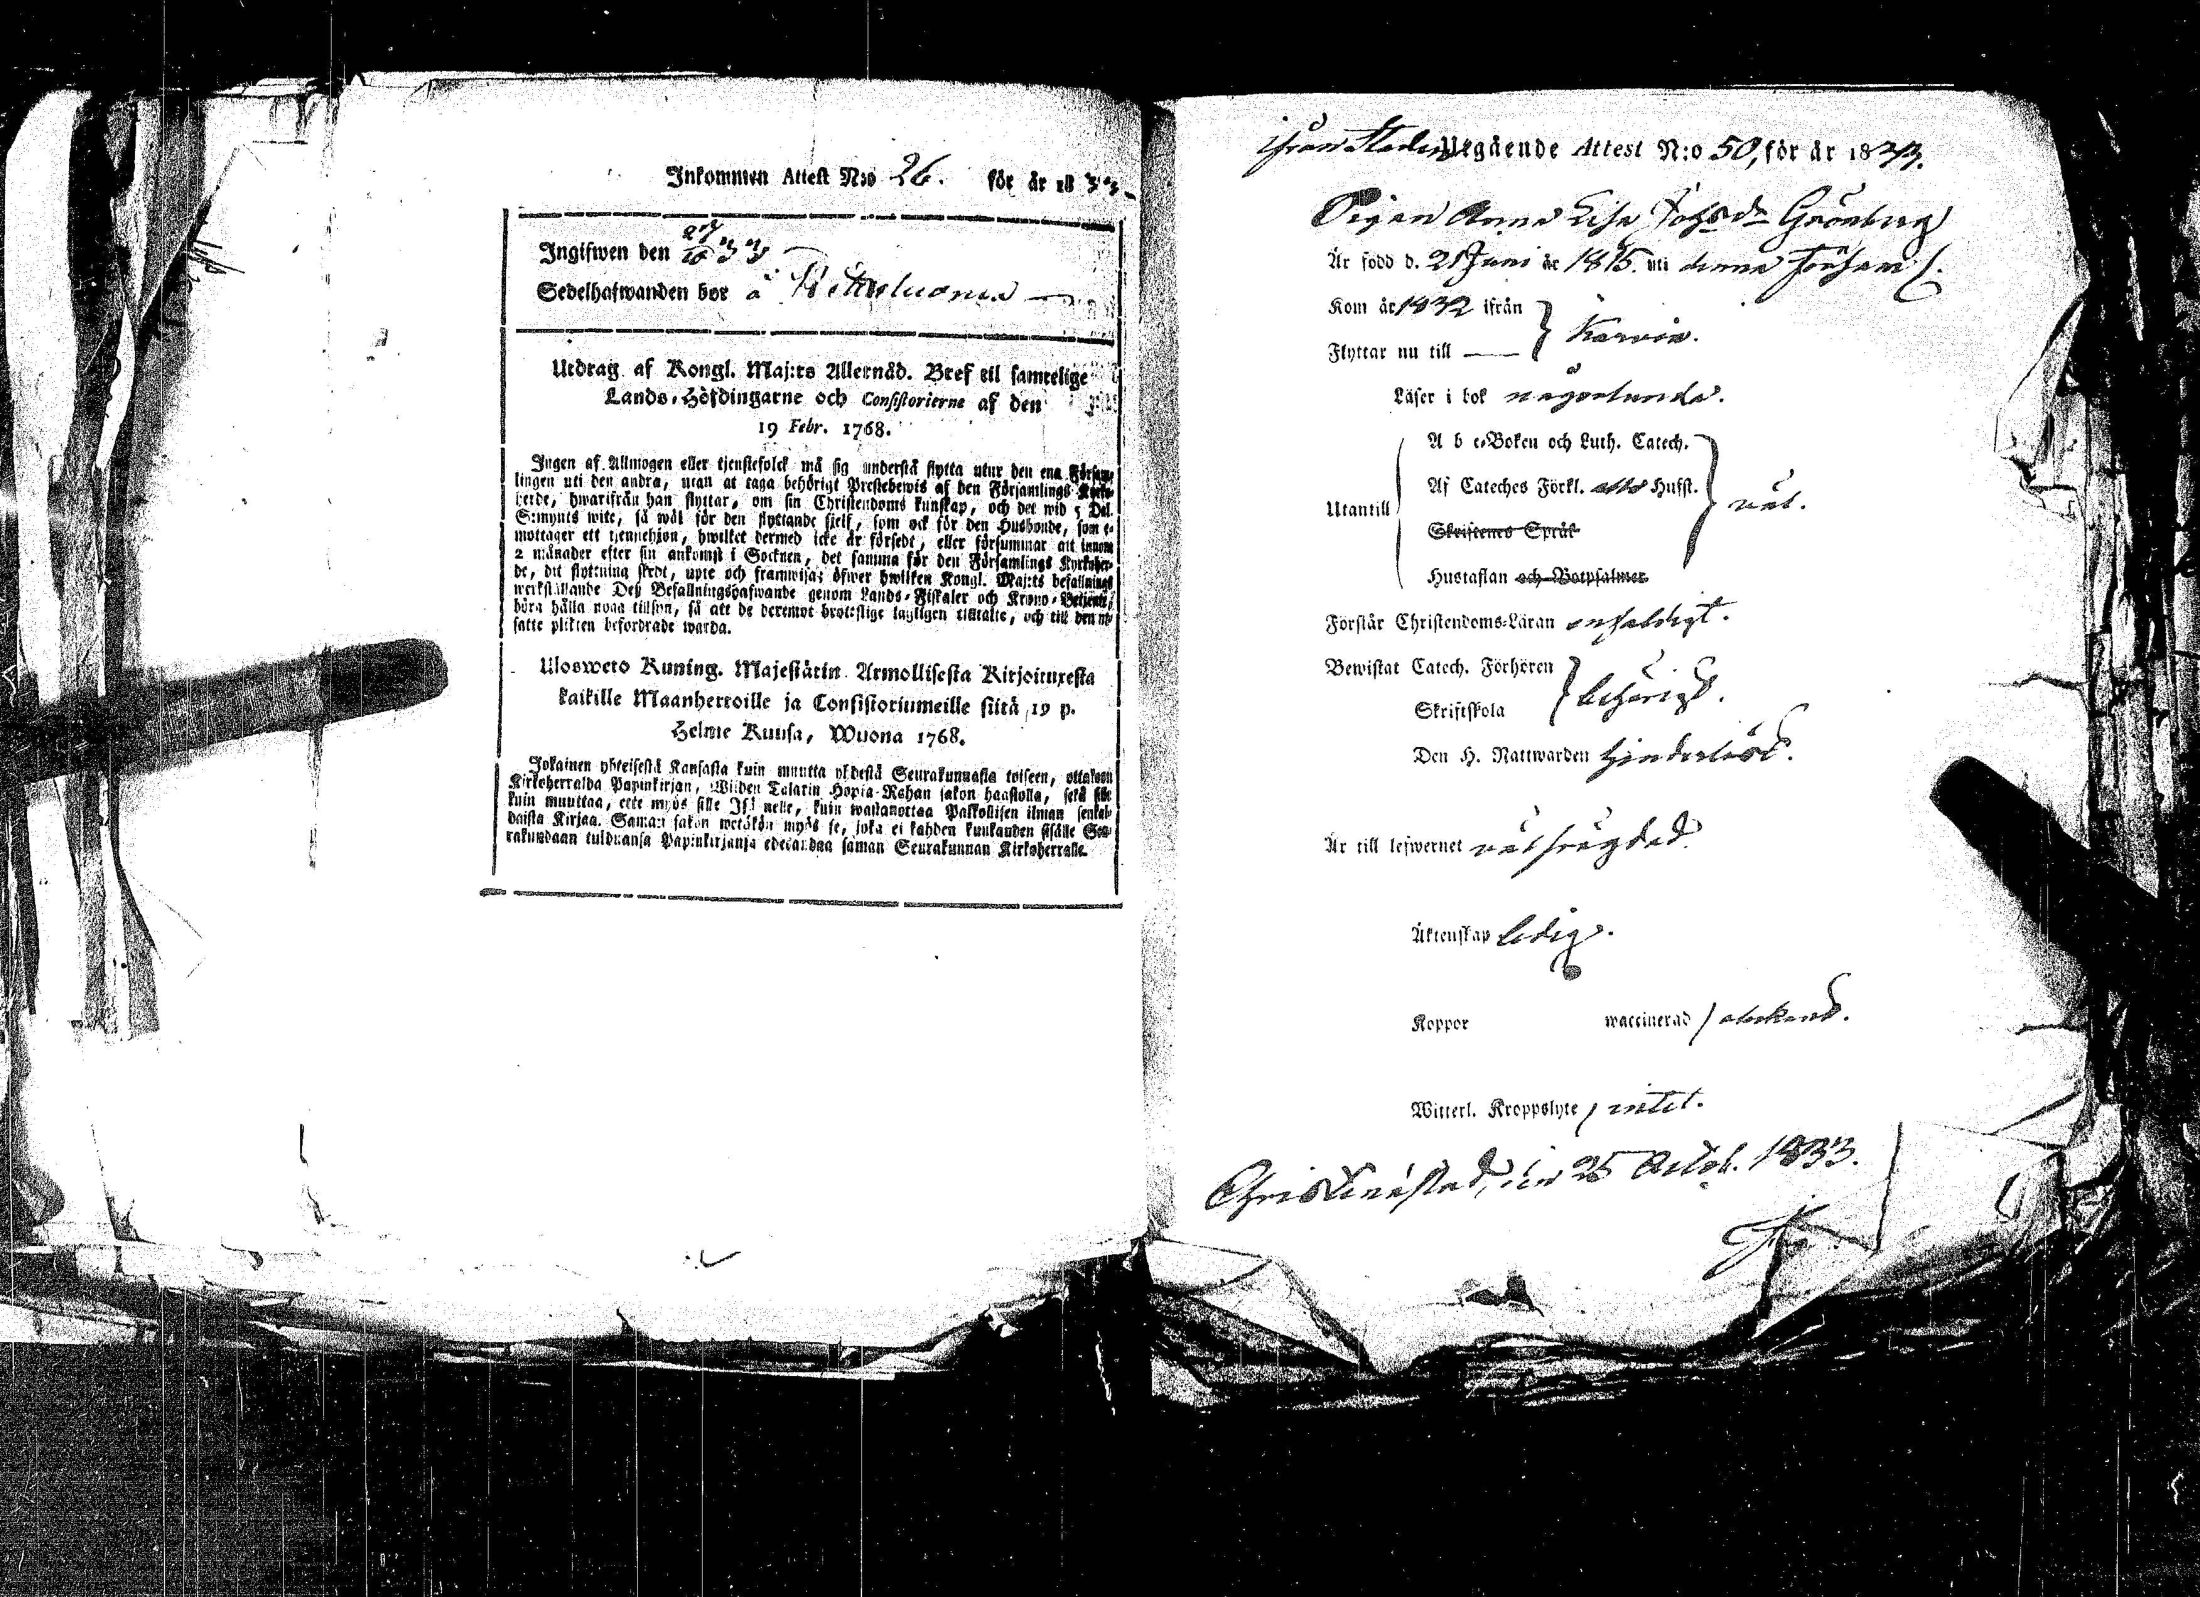 Inkommen Attest N:o 26. för år 1833
Ingifwen den 27/10 33
Sedelhafwanden bor å
Utdrag af Kongl. Maj:ts Allernåd. Bref til samtelige
Lands-Höfdingarne och Consistorierne af den
19 Febr. 1768.
Ingen af Allmogen eller tjenstefolck må sig understå flytta utur den ena Försam-
lingen uti den andra, utan at taga behörigt Prestebewis af den Församlings Kyrko-
herde, hwarifrån han flyttar, om sin Christendoms kunskap, och det wid 5 Dal.
S:mynts wite, så wäl för den flyttande sielf, som ock för den Husbonde, som e-
mottager ett tjennehjon, hwilket dermed icke är försedt, eller försummar att innom
2 månader efter sin ankomst i Socknen, det samma för den Församlings Kyrkoher-
de, dit flyttning skedt, upte och framwisa; öfwer hwilken Kongl. Maj:ts befallnings
werkställande Deß Befallningshafwande genom Lands-Fiskaler och Krono-Betjente,
böra hålla noga tillsyn, så att de deremot brottslige lagligen tilltalte, och till den ut-
satte plikten befordrade warda.
Ulosweto Kuning. Majestätin Armollisesta Kirjoituxesta
kaikille Maanherroille ja Consistoriumeille siitä 19 p.
Helme Kuusa, Wuona 1768.
Jokainen yhteisestä Kansasta kuin muutta yhdestä Seurakunnasta toiseen, ottakoon
Kirkoherralda Papinkirjan, Wiiden Talarin Hopia-Rahan sakon haastolla, sekä sille
kuin muuttaa, ette myös sille Isännelle, kuin wastanottaa Palkollisen ilman senkal-
daista Kirjaa. Saman sakon wetäkön myös se, joka ei kahden kuukauden sisälle Seu-
rakundaan tulduansa Papinkirjansa edesandaa saman Seurakunnan Kirkoherralle.
ifrån Staden Utgående Attest N:o 50, för år 1833.
Pigan Anna Lisa Johsdr Grönberg
Är född d. 21 Juni år 1815. uti denna Församl.
Kom år 1832 ifrån
Flyttar nu till — Karvia.
Läser i bok någorlunda.
A b c-Boken och Luth. Catech.
Af Cateches Förkl. Husst.
Utantill väl.
Skriftenes Språk
Hustaflan och Botpsalmer
Förstår Christendoms-Läran enfaldigt.
Bewistat Catech. Förhören
Skriftskola behörigt.
Den H. Nattwarden hinderlöst.
Är till lefwernet välfrägdad.
Äktenskap ledig.
Koppor waccinerad obekant.
Witterl. Kroppslyte intet.
Christinæstad, den 25 Octob. 1833.